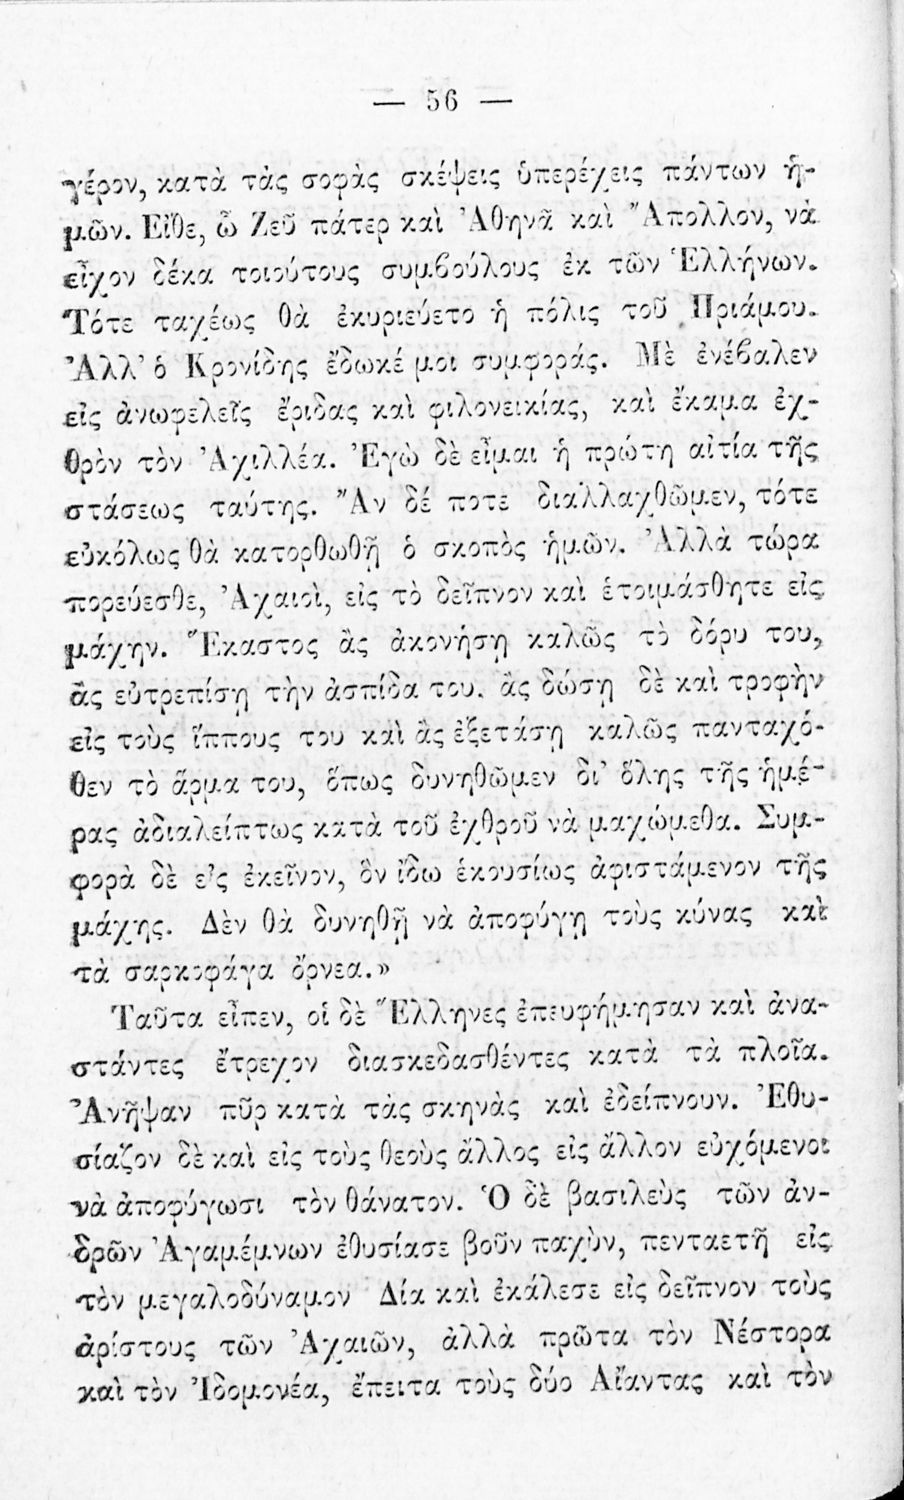 — 56 —
γέρον, κατὰ τὰς σοφὰς σκέψεις ὑπερέχεις πάντων ἡ-
μῶν. Εἴθε, ὦ Ζεῦ πάτερ καὶ Ἀθηνᾶ καὶ Ἄπολλον, νὰ
εἶχον δέκα τοιούτους συμβούλους ἐκ τῶν Ἑλλήνων.
Τότε ταχέως θὰ ἐκυριεύετο ἡ πόλις τοῦ Πριάμου.
Ἀλλ’ ὁ Κρονίδης ἔδωκέ μοι συμφοράς. Μὲ ἐνέβαλεν
εἰς ἀνωφελεῖς ἔριδας καὶ φιλονεικίας, καὶ ἔκαμα ἐχ-
θρὸν τὸν Ἀχιλλέα. Ἐγὼ δὲ εἶμαι ἡ πρώτη αἰτία τῆς
στάσεως ταύτης. Ἂν δέ ποτε διαλλαχθῶμεν, τότε
εὐκόλως θὰ κατορθωθῇ ὁ σκοπὸς ἡμῶν. Ἀλλὰ τώρα
πορεύεσθε, Ἀχαιοὶ, εἰς τὸ δεῖπνον καὶ ἑτοιμάσθητε εἰς
μάχην. Ἕκαστος ἂς ἀκονήσῃ καλῶς τὸ δόρυ του,
ἂς εὐτρεπίσῃ τὴν ἀσπίδα του. ἂς δώσῃ δὲ καὶ τροφὴν
εἰς τοὺς ἵππους του καὶ ἂς ἐξετάσῃ καλῶς πανταχό-
θεν τὸ ἅρμα του, ὅπως δυνηθῶμεν δι’ ὅλης τῆς ἡμέ-
ρας ἀδιαλείπτως κατὰ τοῦ ἐχθροῦ νὰ μαχώμεθα. Συμ-
φορὰ δὲ εἰς ἐκεῖνον, ὃν ἴδω ἑκουσίως ἀφιστάμενον τῆς
μάχης. Δὲν θὰ δυνηθῇ νὰ ἀποφύγῃ τοὺς κύνας καὶ
τὰ σαρκοφάγα ὄρνεα.»
Ταῦτα εἶπεν, οἱ δὲ Ἕλληνες ἐπευφήμησαν καὶ ἀνα-
στάντες ἔτρεχον διασκεδασθέντες κατὰ τὰ πλοῖα.
Ἀνῆψαν πῦρ κατὰ τὰς σκηνὰς καὶ ἐδείπνουν. Ἐθυ-
σίαζον δὲ καὶ εἰς τοὺς θεοὺς ἄλλος εἰς ἄλλον εὐχόμενοι
νὰ ἀποφύγωσι τὸν θάνατον. Ὁ δὲ βασιλεὺς τῶν ἀν-
δρῶν Ἀγαμέμνων ἐθυσίασε βοῦν παχὺν, πενταετῆ εἰς
τὸν μεγαλοδύναμον Δία καὶ ἐκάλεσε εἰς δεῖπνον τοὺς
ἀρίστους τῶν Ἀχαιῶν, ἀλλὰ πρῶτα τὸν Νέστορα
καὶ τὸν Ἰδομονέα, ἔπειτα τοὺς δύο Αἴαντας καὶ τὸν